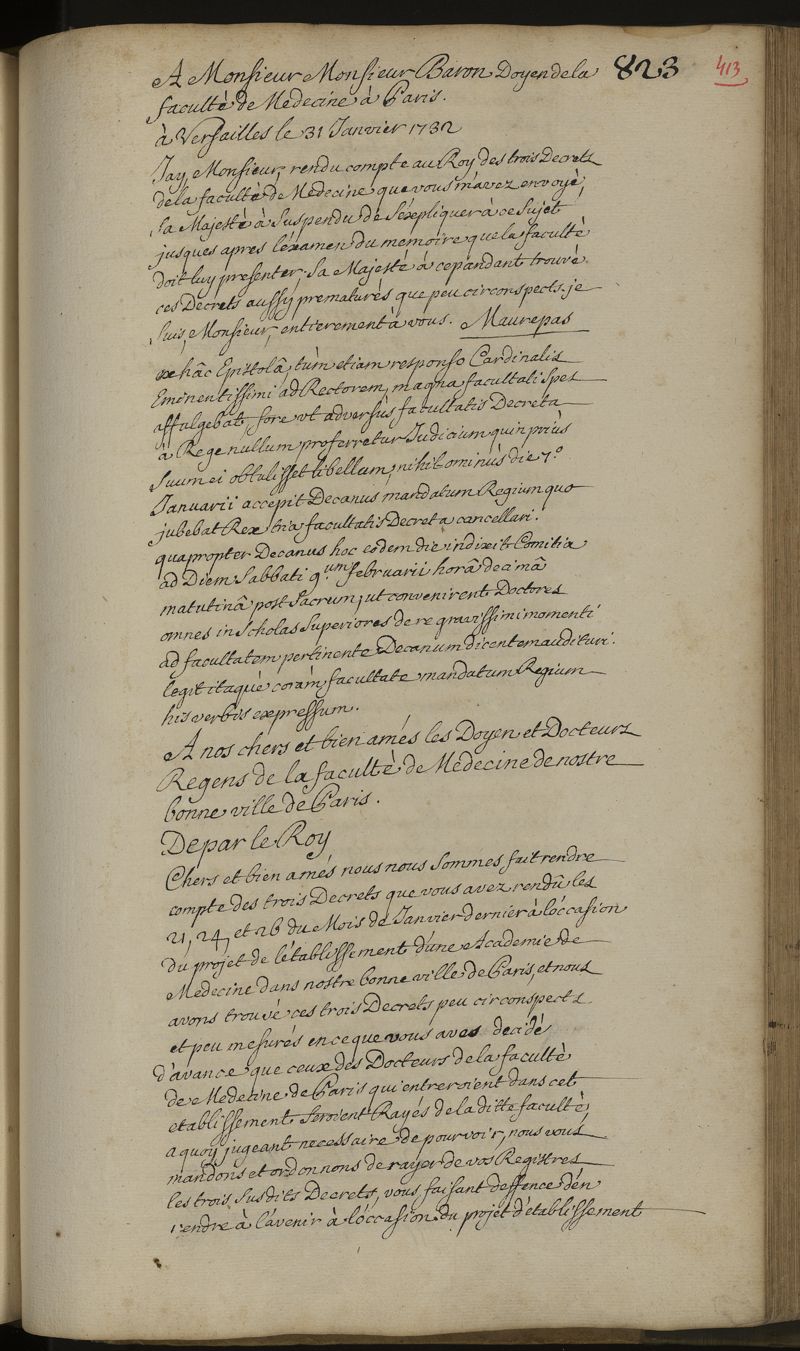 A Monsieur Monsieur Baron Doyen de la 823 413
faculté de Medecine à Paris.
à Versailles le 31 Janvier 1732
Jay, Monsieur, rendu compte au Roy des trois Decrets
de la faculté de Medecine que vous m'avez envoyé,
sa Majesté à suspendu de s'éxpliquer à ce sujet
jusques apres l'éxamen du memoire que la faculté
doit luy presenter. Sa Majesté à cependant trouvé
ces Decrets aussy prematurés que peu circonspects. je
suis, Monsieur, entierement à vous. Maurepas
ex hâc Epistolâ, tùm etiam responso Cardinalis
Eminentissimi ad Rectorem, magna facultati Spes
affulgebat, fore vt adversùs facultatis Decreta
à Rege nullum proferretur Judicium quin priùs
Suum ei obtulisset libellum, nihilominùs die 7.º
Januarii accepit Decanus mandatum Regium quo
jubebat Rex tria facultatis Decreta cancellari.
quapropter Decanus hoc eodem die indixit Comitia
ad Diem Sabbati 9.um februarii horâ decimâ
matutinâ post Sacrum, ut convenirent Doctores
omnes in Scholas Superiores de re gravissimi momenti
ad facultatem pertinente Decanum dicentem audituri.
legit itaque coràm facultate mandatum Regium
his verbis expressum.
A nos chers et bien amés les Doyen et Docteurs
Regens de la faculté de Medecine de nostre
bonne ville de Paris.
De par le Roy
Chers et bien amés nous nous sommes fait rendre
compte des trois Decrets que vous avez rendû les
21, 24, et 26 du Mois de Janvier dernier à l'óccasion
du projet de l'établissement d'une Academie de
Medecine dans nostre bonne ville de Paris, et nous
avons trouvé ces trois Decrets peu circonspects
et peu mesurés en ce que vous aves decidé
d'avance que ceux des Docteurs de la faculté
de Medecine de Paris qui entreroient dans cet
etablissement seroient Rayés de la ditte faculté,
a quoy jugeant necessaire de pourvoir, nous vous
mandons et ordonnons de rayer de vos Registres
les trois susdits Decrets, vous faisant deffence d'én
rendre à l'avenir à l'óccasion du projet d'établissement